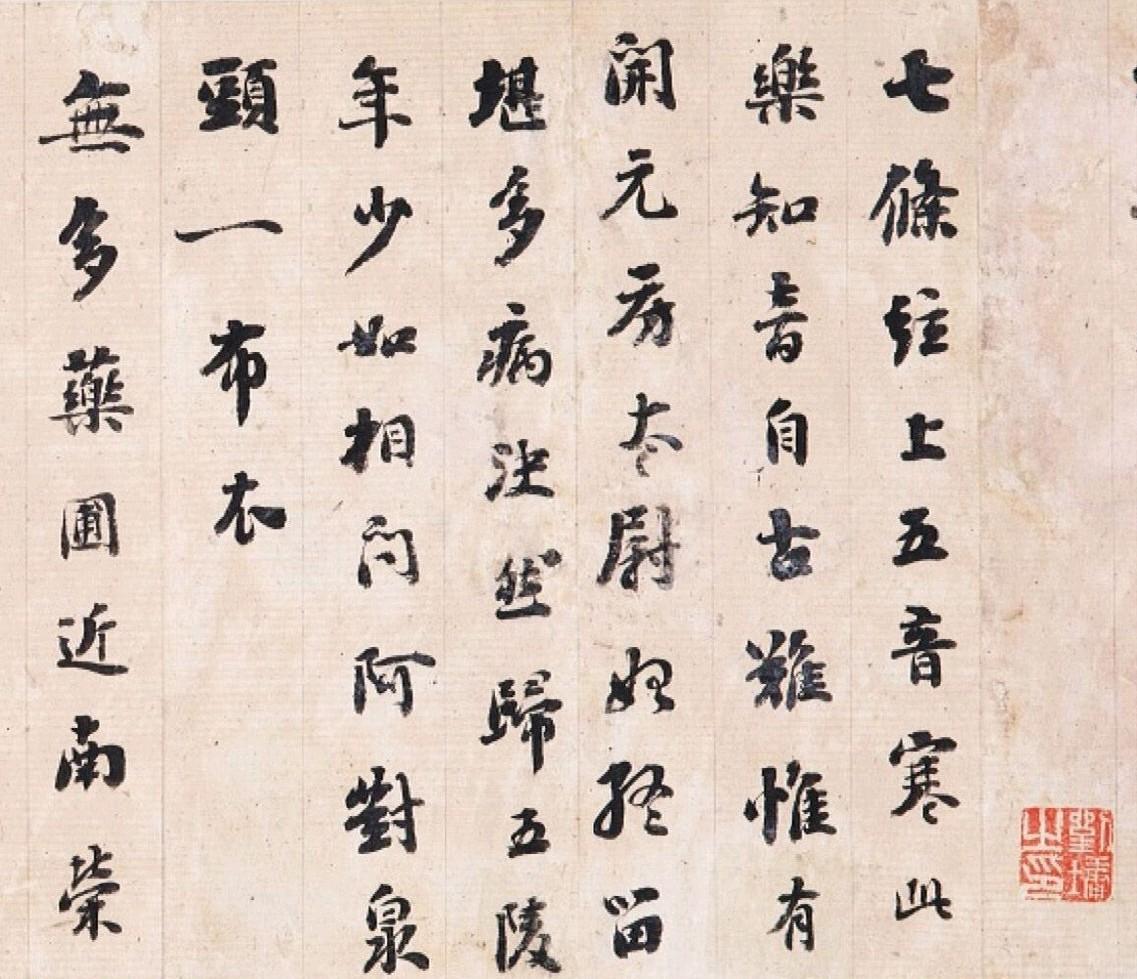 劉墉之印
七條絃上五音寒此
樂知音自古難惟有
開元房太尉始終留
堪多病決然歸五陵
年少如相問阿對泉
頭一布衣
無多藥圃近南榮